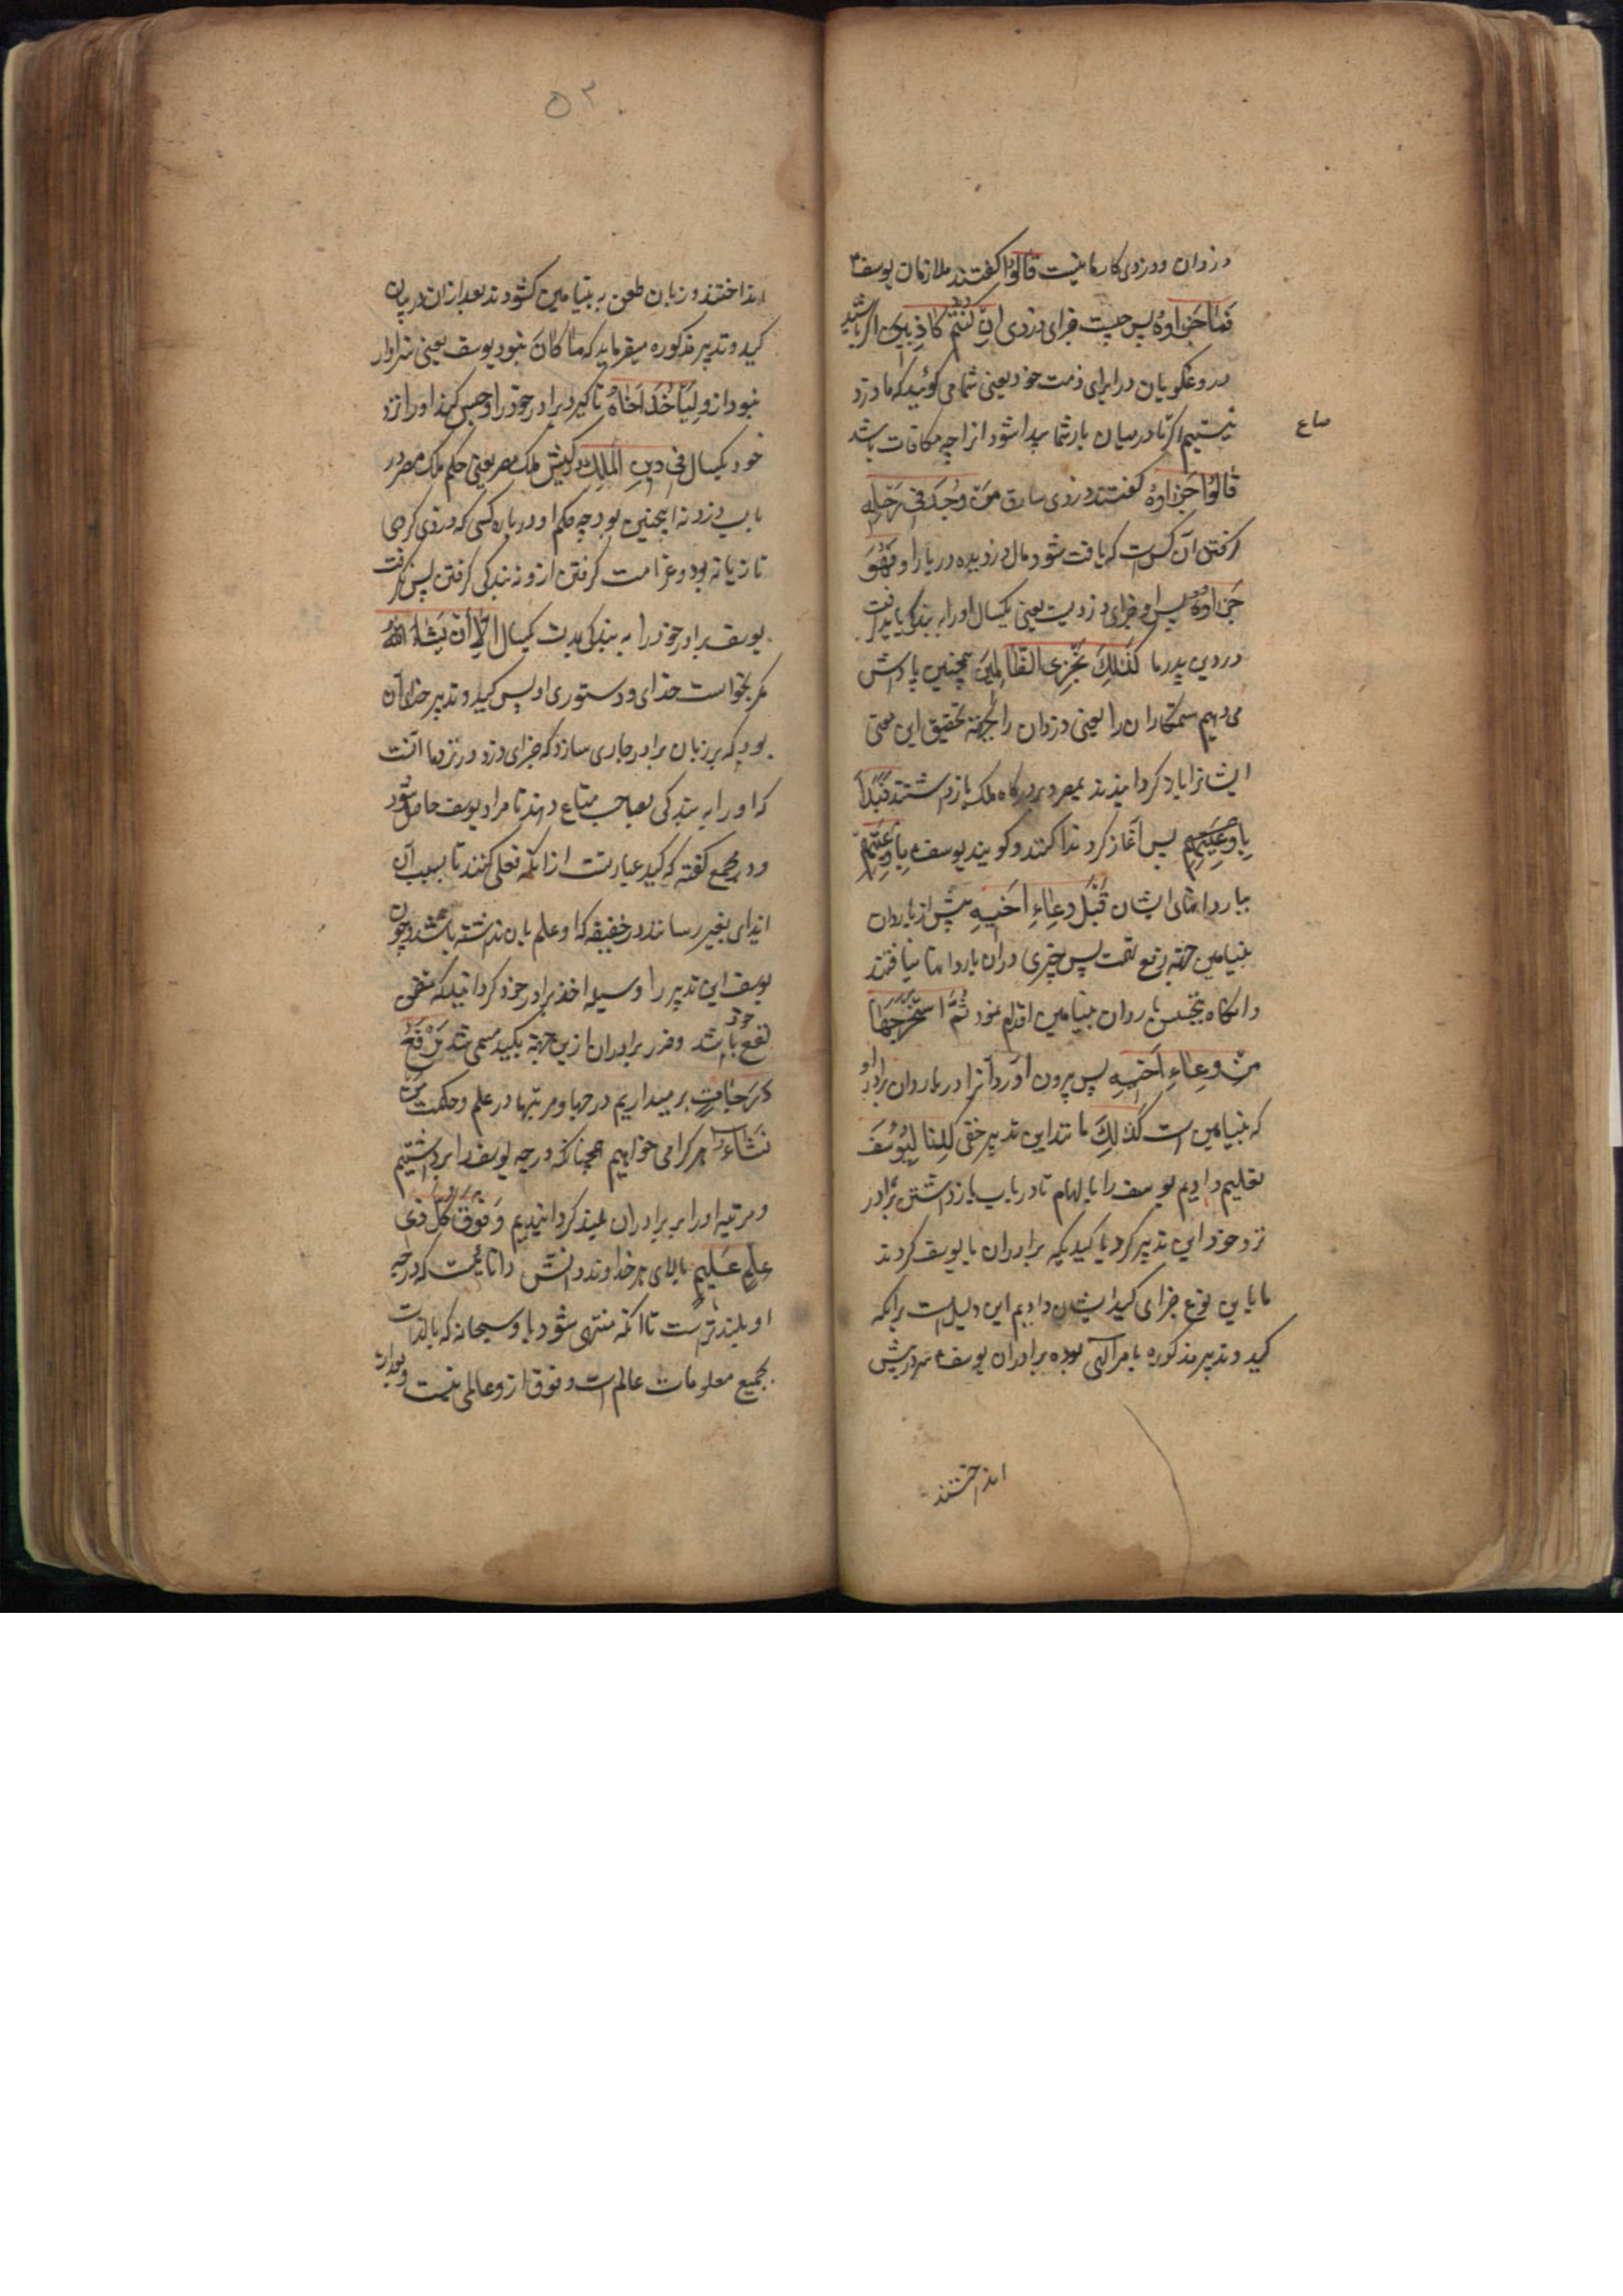 دزدان و دزدی کار ما نیست قَالُوا گفتند ملازمان یوسف
فَمَا جَزَاؤُهُ پس چیست جزای دزدی اِن کُنتُم کَاذِبِینَ اگر باشید
دروغگویان در ابرای ذمت خود یعنی شما می کوئید که ما دزد
نیستیم اگر تا در میان بار شما پیدا شود انرا چه مکافات باشد
صاع
قَالُوا جَزَاؤُهُ گفتند دزدی سارق مَن وُجِدَ فِی رَحلِهِ
گرفتن آن کس است که یافت شود مال دزدیده در بار او فَهُوَ
جَزَاؤُهُ پس او جزای دزدیست یعنی یکسال او را به بندگی باید گرفت
در دین پدر ما کَذَلِکَ نَجزِی الظَّالِمِینَ همچنین پاداش
می دهیم ستمکاران را یعنی دزدان را بجهته تحقیق این معنی
ایشانرا باد کردانیدند بمصر و بدرگاه ملک باز داشتند فَبَدَأَ
بِاَوعِیَتِهِم پس آغاز کرد ندا کنند و کویند یوسف بِاَوعِیَتِهِم
ببار دانهای ایشان قَبلَ وِعَاءِ اَخِیهِ پیش از باردان
بنیامین جهته رفع تهمت پس چیزی دران باردانها نیافتند
و انگاه بتجسس باردان بنیامین اقدام نمود ثُمَّ استَخرَجَهَا
مِن وِعَاءِ اَخِیهِ پس بیرون آورد آنرا در باردان برادر او
که بنیامین است کَذَلِکَ مانند این تدبیر خفی کِدنَا لِیُوسُفَ
تعلیم دادیم یوسف را بالهام تا در باب باز داشتن برادر
نزد خود این تدبیر کرد یا کیدیکه برادران با یوسف کردند
ما باین نوع جزای کید ایشان دادیم این دلیل است برانکه
کید و تدبیر مذکوره بامر الهی بوده برادران یوسف سر در پیش
انداختند
۵۳
انداختند و زبان طعن به بنیامین کشودند بعد ازان در بیان
کید و تدبیر مذکوره میفرماید که مَا کَانَ نبود یوسف یعنی سزاوار
نبود ازو لِیَأخُذَ اَخَاهُ تا کیرد برادر خود را و حبس کند او را نزد
خود یکسال فِی دِینِ المَلِکِ در کیش ملک مصر یعنی حکم ملک مصر در
باب دزد نه اینچنین بود چه حکم او در باره کسی که دزدی کردی
تازیانه بود و غرامت گرفتن ازو نه بندگی گرفتن پس نگرفت
یوسف برادر خود را به بندگی مدت یکسال اِلَّا اَن یَشَاءَ اللهُ
مگر بخواست خدای و دستوری او پس کید و تدبیر خدا آن
بود که بر زبان برادر جاری سازد که جزای دزد در نزد ما آنست
که او را به بندگی بصاحب متاع دهند تا مراد یوسف حاصل شود
و در مجمع گفته که کید عبارتست ازانکه فعلی کنند تا بسبب آن
ایذای بغیر رسانند در خفیه که او علم بان نداشته باشد و چون
یوسف این تدبیر را وسیله اخذ برادر خود کردانید که متضمن
نفع خود باشد و ضرر برادران ازین جهته بکید مسمی شد نَرفَعُ
دَرَجَاتٍ بر میداریم درجها و مرتبها در علم و حکمت مَن
نَشَاءُ هر کرا می خواهیم همچنانکه درجه یوسف را برداشتیم
و مرتبه او را بر برادران بلند کردانیدیم وَ فَوقَ کُلِّ ذِی
عِلمٍ عَلِیمٌ بالای هر خداوند دانش داناییست که درجه
او بلندتر است تا انکه منتهی شود باو سبحانه که بالذات
بجمیع معلومات عالم است و فوق ازو عالمی نیست و